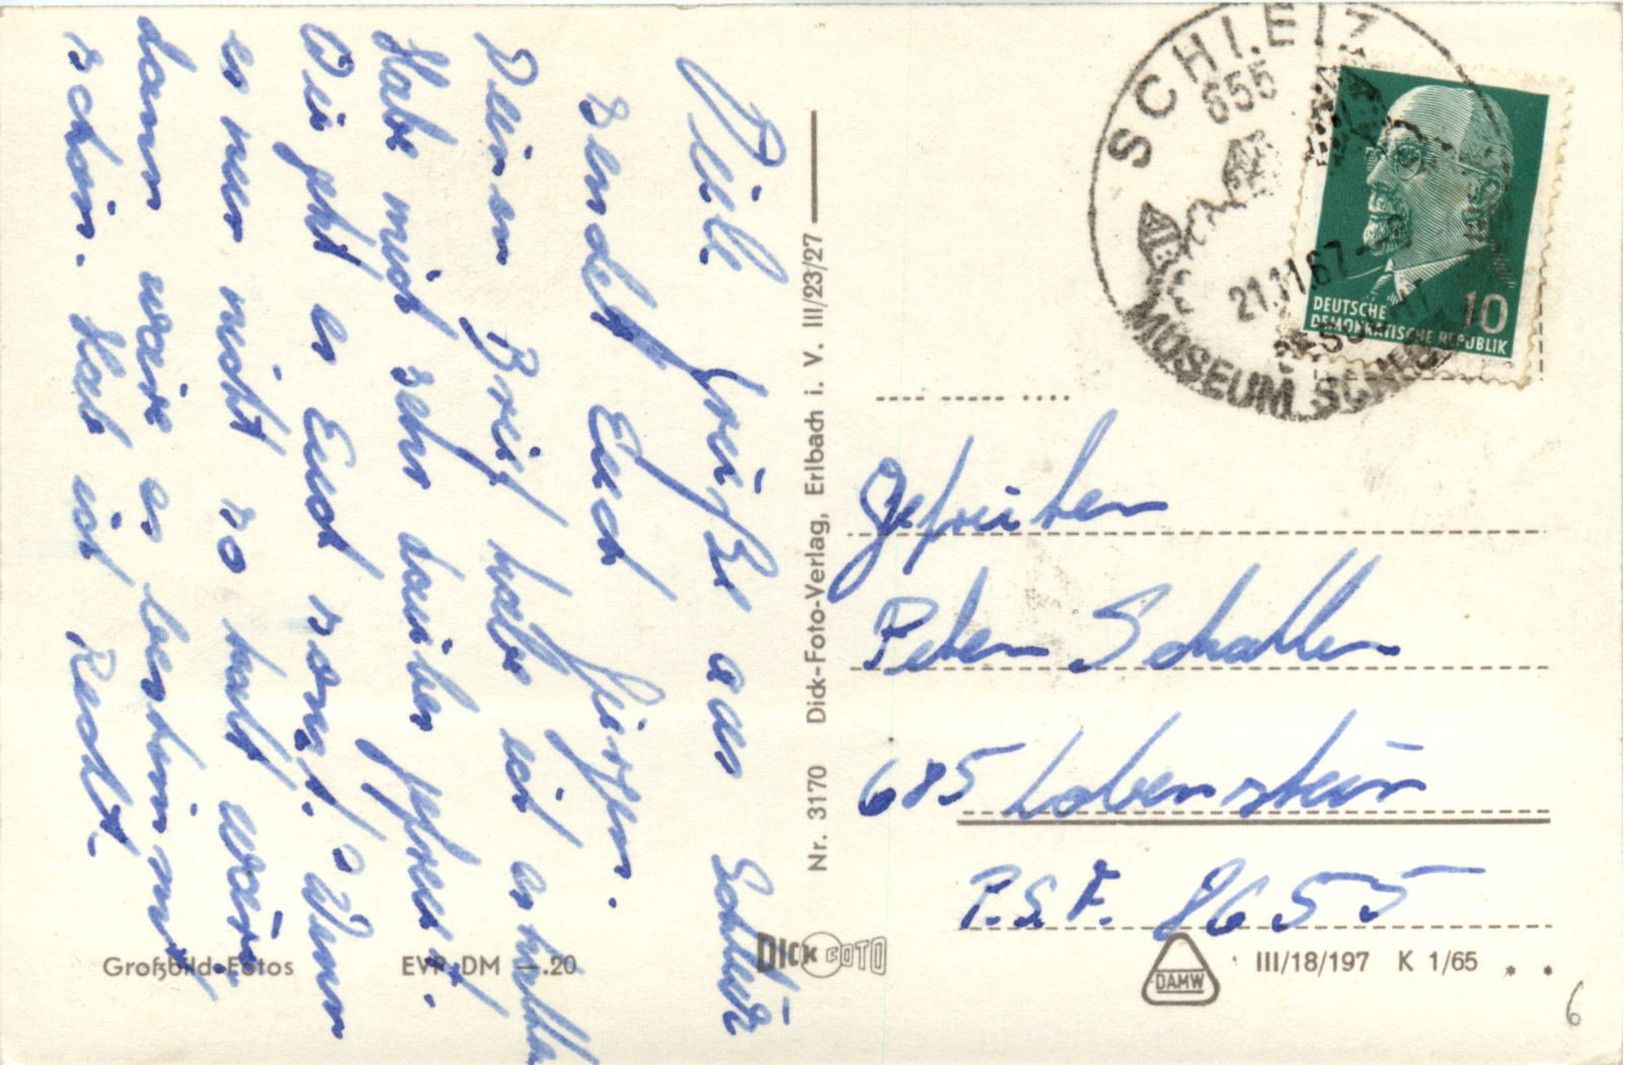 Viele Grüße aus Schleiz
sendet Euch Jürgen.
Deinen Brief habe ich erhalten
Habe mich sehr darüber gefreut.
Wie geht es Euch sonst? Wenn
es nur nicht so kalt wäre,
dann wäre es bestimmt
schön. Hab ich Recht.
Nr. 3170 Dick-Foto-Verlag, Erlbach i. V. III/23/27
SCHLEIZ
655
21.11.67
MUSEUM
DEUTSCHE
DEMOKRATISCHE REPUBLIK
10
Gefreiten
Peter Schaller
685 Lobenstein
P.S.F. 8655
Großbild-Fotos EVP DM -.20
DICK FOTO
DAMW
III/18/197 K 1/65
6